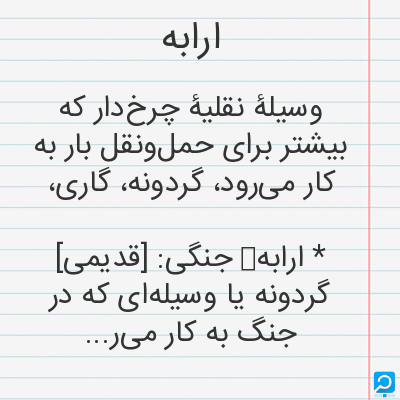 ارابه
وسیلهٔ نقلیهٔ چرخ‌دار که
بیشتر برای حمل‌ونقل بار به
کار می‌رود، گردونه، گاری،
* ارابه▯ جنگی: [قدیمی]
گردونه یا وسیله‌ای که در
جنگ به کار می‌ر...